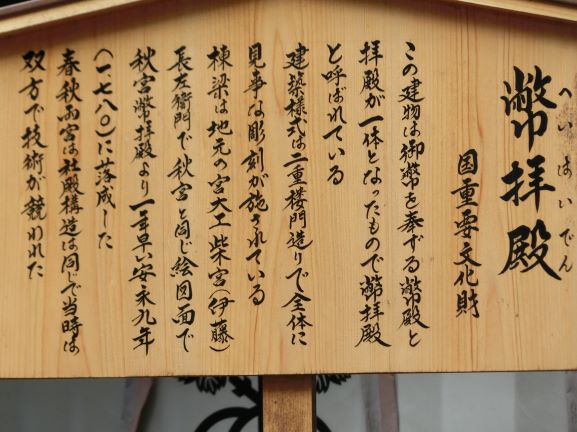 へいはいでん
幣拝殿
国重要文化財
この建物は御幣を奉ずる幣殿と
拝殿が一体となったもので幣拝殿
と呼ばれている
建築様式は二重楼門造りで全体に
見事な彫刻が施されている
棟梁は地元の宮大工柴宮(伊藤)
長左衛門で秋宮と同じ絵図面で
秋宮幣拝殿より一年早い安永九年
(一、七八〇)に落成した
春秋両宮は社殿構造は同じで当時は
双方で技術が競われた